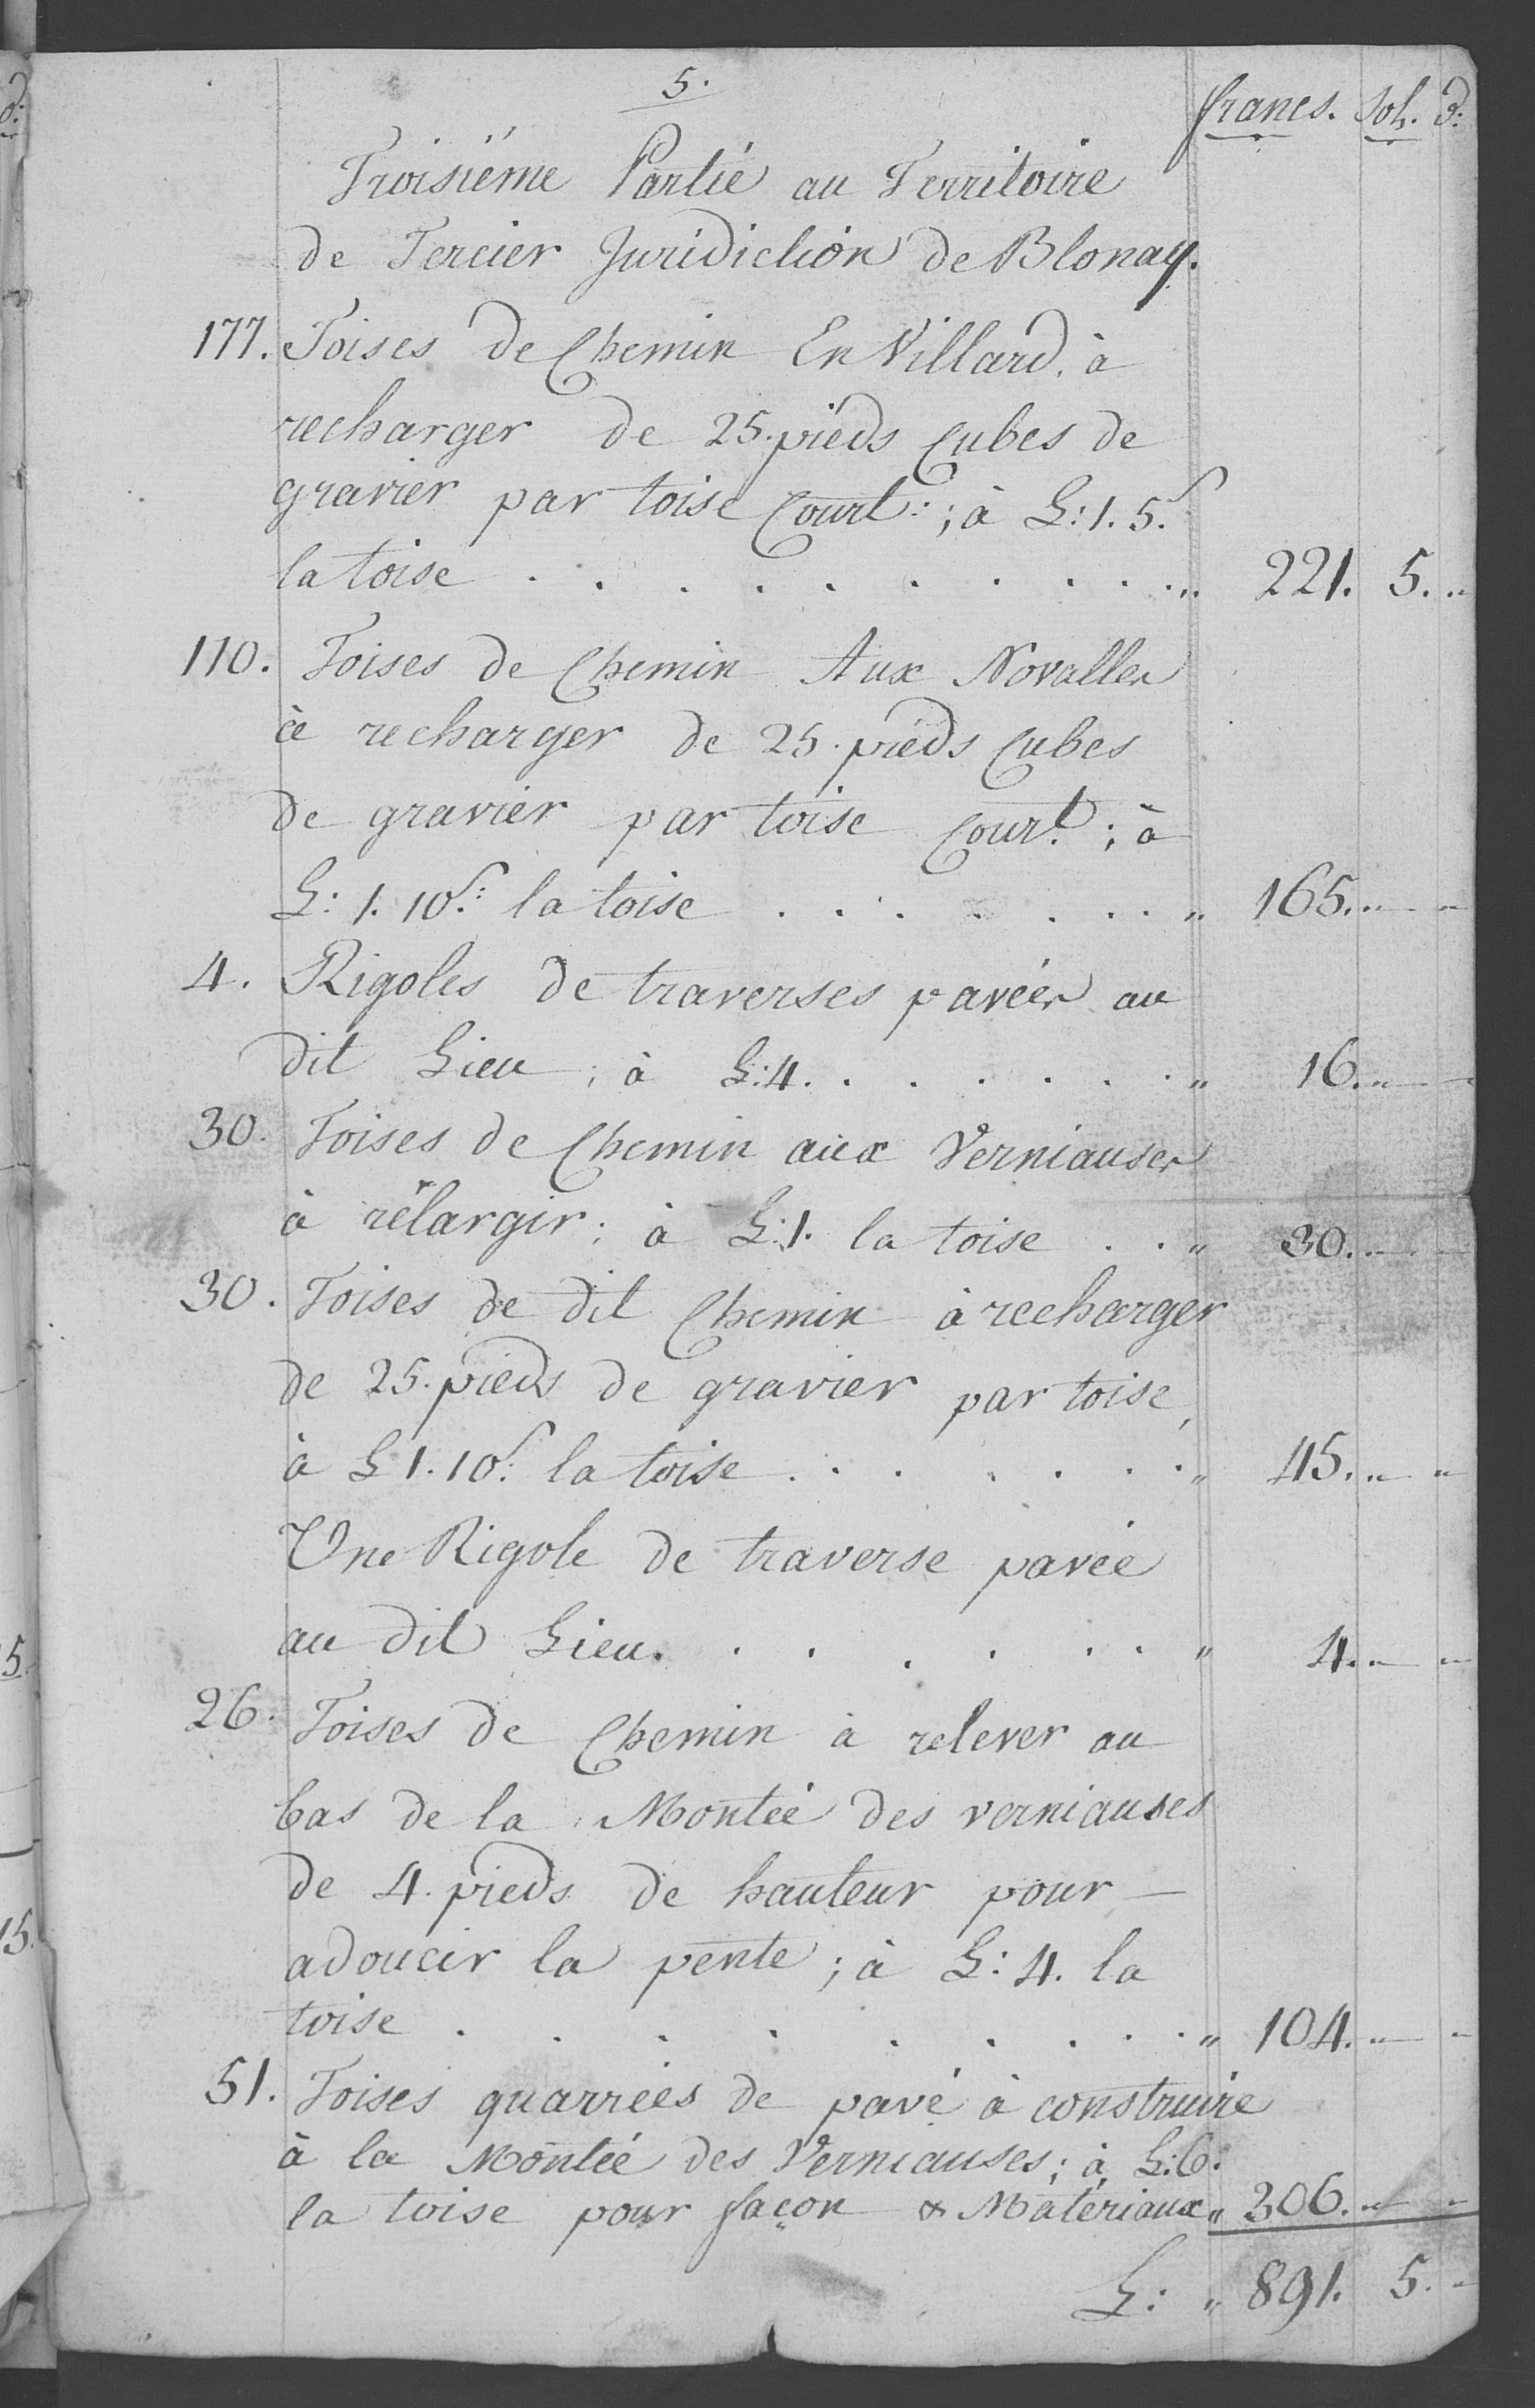 5.
francs. sols. d:
Troisiéme Partie au Territoire
de Tercier Juridiction de Blonay.
177. Toises de Chemin En Villard, à
recharger de 25. pieds Cubes de
gravier par toise Court:; à L: 1. 5.s
la toise . . . . . . . . . . . " 221. 5. "
110. Toises de Chemin Aux Novalles
à recharger de 25. pieds Cubes
de gravier par toise Court; à
L: 1. 10s: la toise . . . . . . . . " 165. " "
4. Rigoles de traverses pavées au
dit Lieu; à L: 4. . . . . . . " 16. " "
30. Toises de Chemin aux Verniauses
à rélargir; à L: 1. la toise . . " 30. " "
30. Toises de dit Chemin à recharger
de 25. pieds de gravier par toise,
à L 1. 10s: la toise . . . . . . . " 45. " "
Une Rigole de traverse pavée
au dit Lieu. . . . . . . . " 4. " "
26. Toises de Chemin à relever au
bas de la Montée des verniauses
de 4. pieds de hauteur pour
adoucir la pente; à L: 4. la
toise . . . . . . . . . " 104. " "
51. Toises quarrées de pavé à construire
à la Montée des Verniauses; à L: 6.
la toise pour façon & Matériaux " 306. " "
L: " 891. 5. "